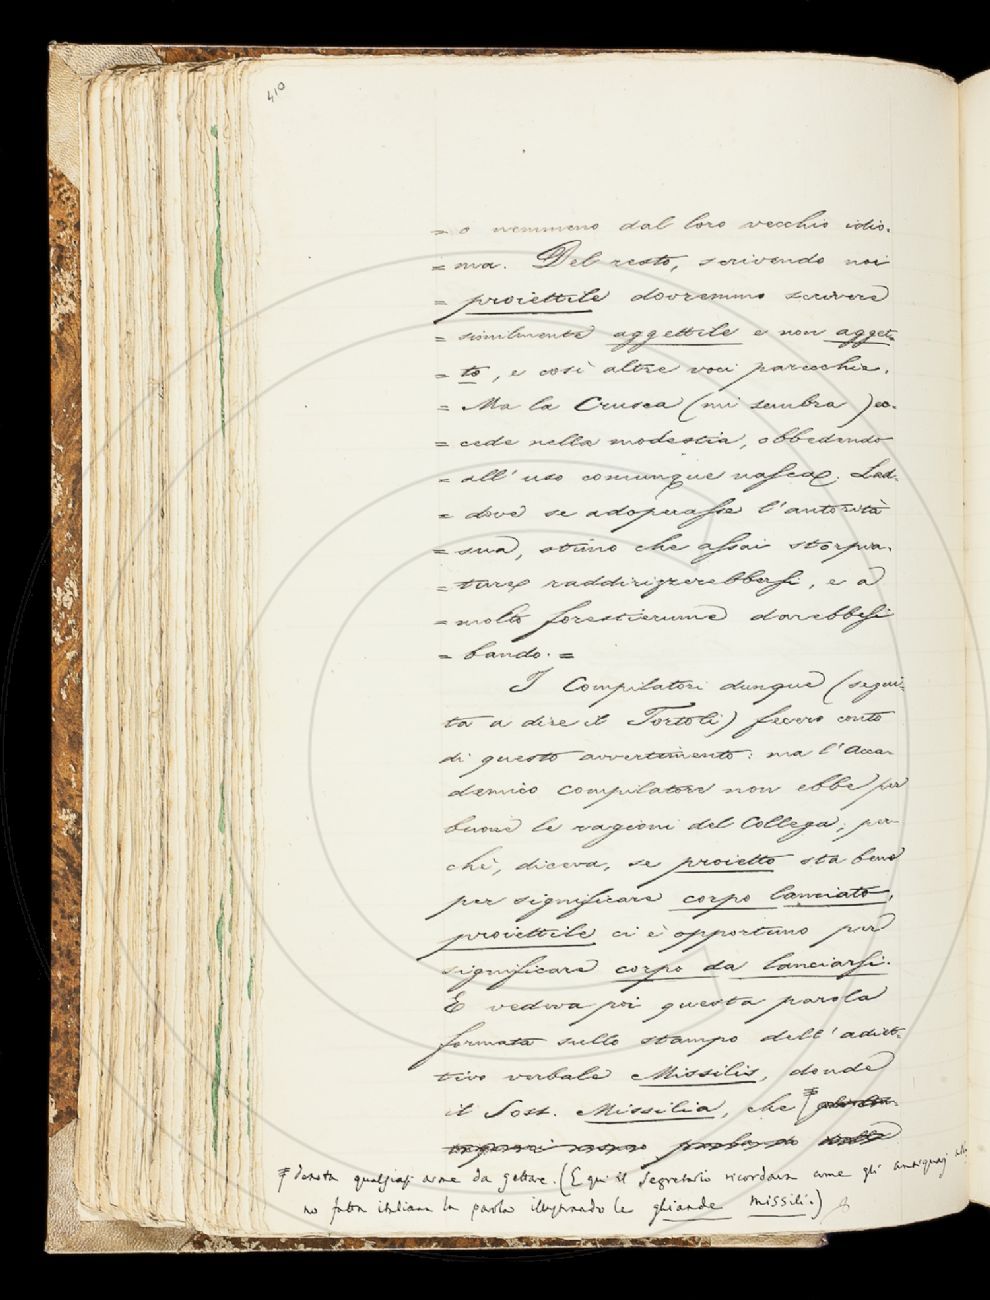 410
= o nemmeno dal loro vecchio idio-
= ma. Del resto, scrivendo noi
= proiettile dovremmo scrivere
= similmente aggettile e non agget-
= to, e così altre voci parecchie.
= Ma la Crusca (mi sembra) ec-
= cede nella modestia, obbedendo
= all' uso comunque nasca. Lad-
= dove se adoperasse l'autorità
= sua, stimo che assai storpia-
= ture raddirizzerebbersi, e a
= molto forestierume darebbesi
= bando. =
I Compilatori dunque (segui-
ta a dire il Tortoli) fecero conto
di questo avvertimento: ma l'Acca-
demico compilatore non ebbe per
buone le ragioni del Collega; per-
chè, diceva, se proietto sta bene
per significare corpo lanciato,
proiettile ci è opportuno per
significare corpo da lanciarsi.
E vedeva poi questa parola
formata sullo stampo dell' adiet-
tivo verbale Missilis, donde
il Sost. Missilia, che
denota qualsiasi arme da gettare. (E qui il Segretario ricordava come gli antiquarj
no fatta italiana la parola illustrando le ghiande missili.)